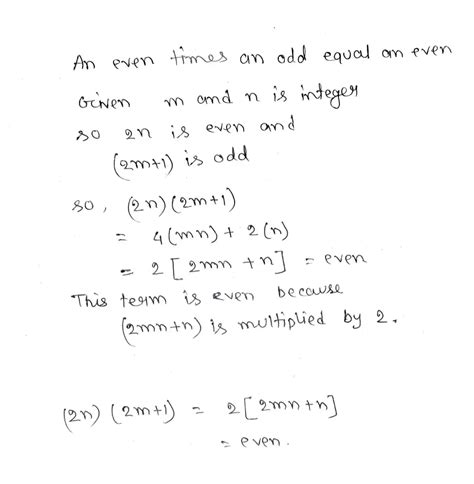 An even times an odd equal an even
Given m and n is integer
so 2n is even and
(2m+1) is odd
so, (2n)(2m+1)
= 4(mn) + 2(n)
= 2[2mn + n] = even
This term is even because
(2mn+n) is multiplied by 2.
(2n) (2m+1) = 2[2mn+n]
= even.